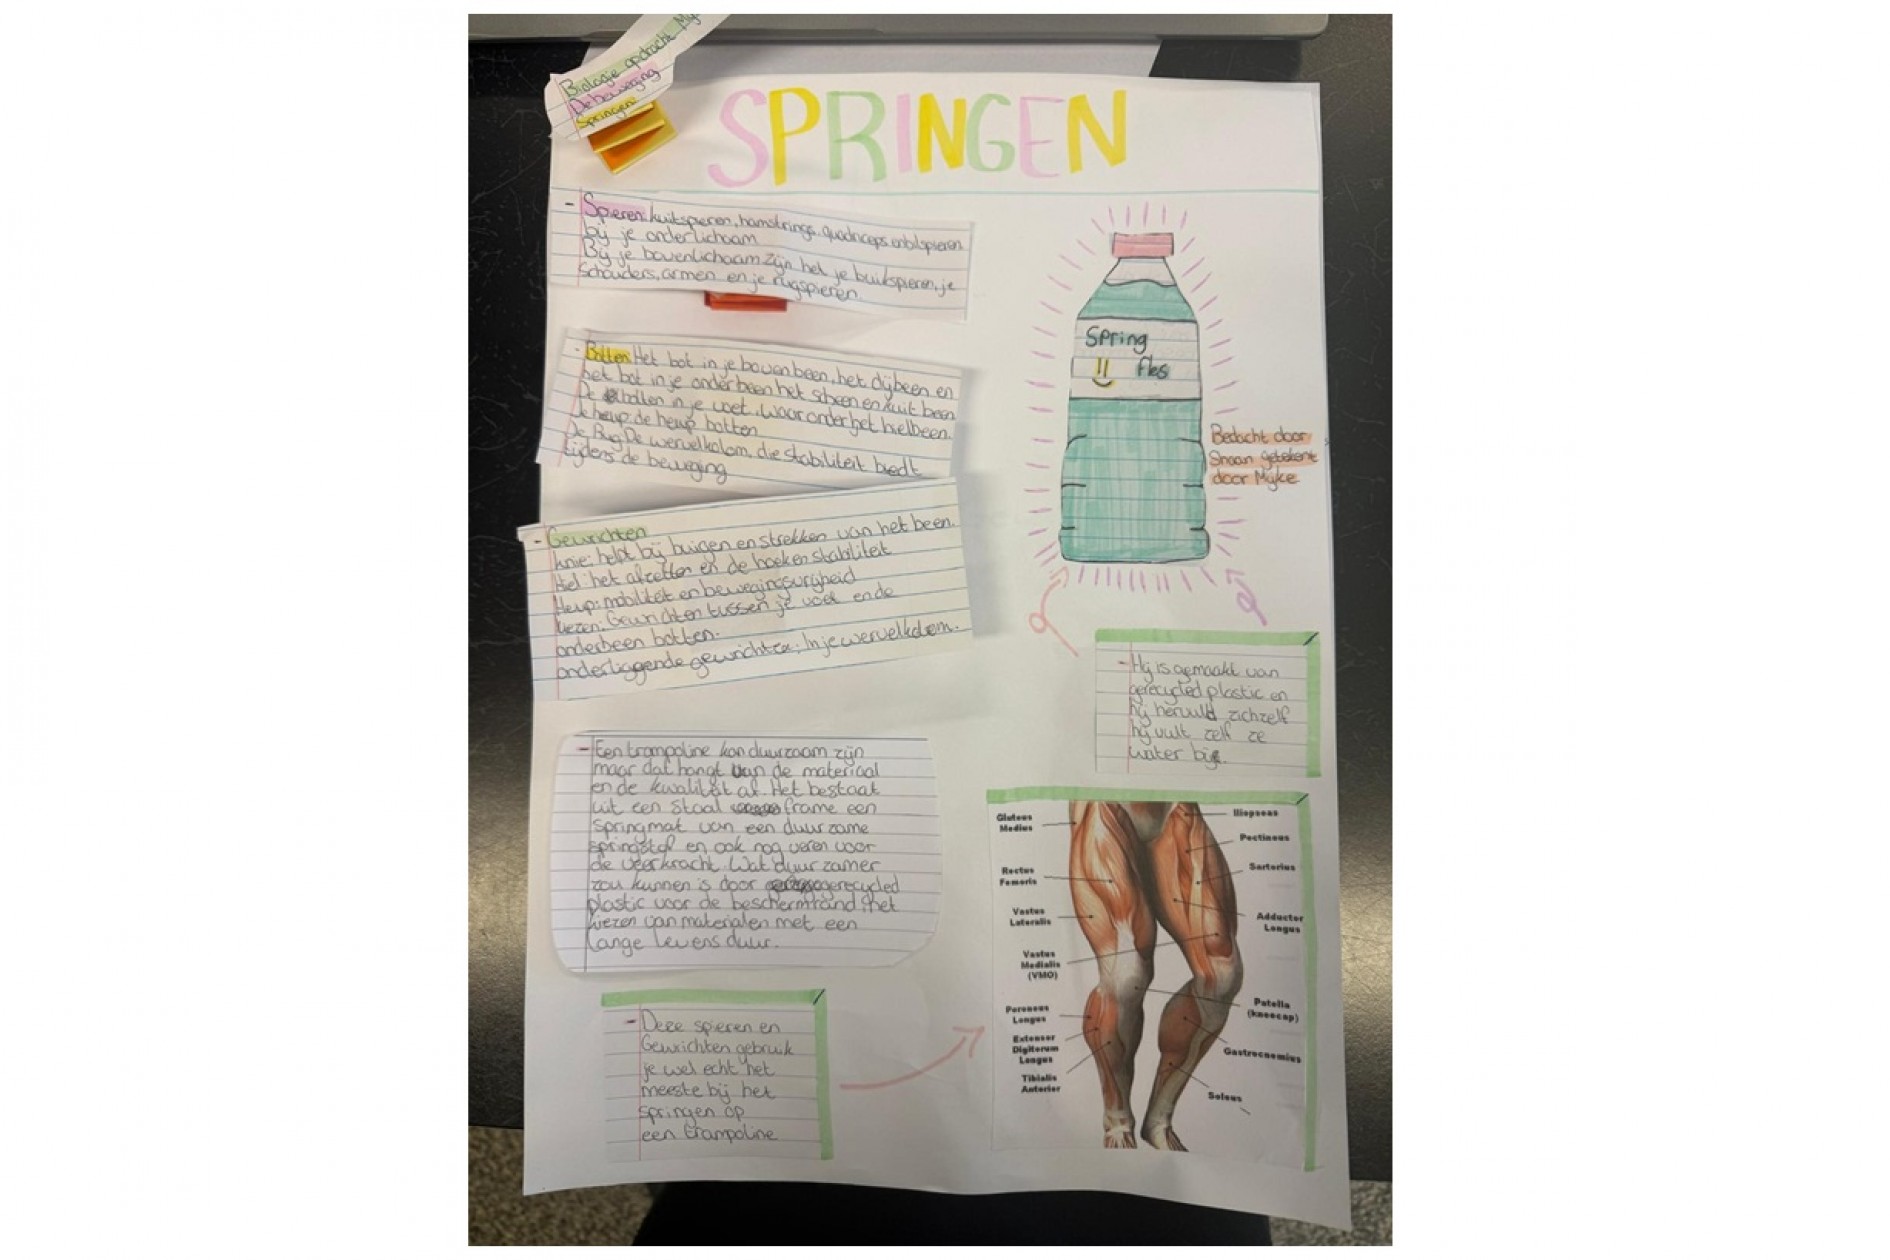 Biologie opdracht
De beweging
Springen
SPRINGEN
- Spieren: kuitspieren, hamstrings, quadriceps, en bilspieren
bij je onderlichaam
Bij je bovenlichaam zijn het je buikspieren, je
schouders, armen en je rugspieren.
- Botten Het bot in je bovenbeen, het dijbeen en
het bot in je onderbeen het scheen en kuit been
De botten in je voet, waaronder het hielbeen.
de heup: de heup botten
De Rug De wervelkolom, die stabiliteit biedt
tijdens de beweging
- Gewrichten
knie: helpt bij buigen en strekken van het been.
het afzetten en de hoeken stabiliteit
Heup: mobiliteit en bewegingsvrijheid
Gewrichten tussen je voet en de
onderbeen botten.
onderliggende gewrichten: In je wervelkolom.
Spring
fles
Bedacht door
getekent
door Myke
- Hij is gemaakt van
gerecycled plastic en
hij hervuld zichzelf
hij vult zelf ze
water bij.
- Een trampoline kan duurzaam zijn
maar dat hangt van de materiaal
en de kwaliteit af. Het bestaat
uit een staal frame een
springmat van een duurzame
springstof en ook nog veren voor
de veerkracht. Wat duurzamer
zou kunnen is door gerecycled
plastic voor de beschermrand. het
kiezen van materialen met een
lange levensduur.
- Deze spieren en
Gewrichten gebruik
je wel echt het
meeste bij het
springen op
een trampoline
Gluteus
Medius
Rectus
Femoris
Vastus
Lateralis
Vastus
Medialis
(VMO)
Peroneus
Longus
Extensor
Digitorum
Longus
Tibialis
Anterior
Iliopsoas
Pectineus
Sartorius
Adductor
Longus
Patella
(kneecap)
Gastrocnemius
Soleus